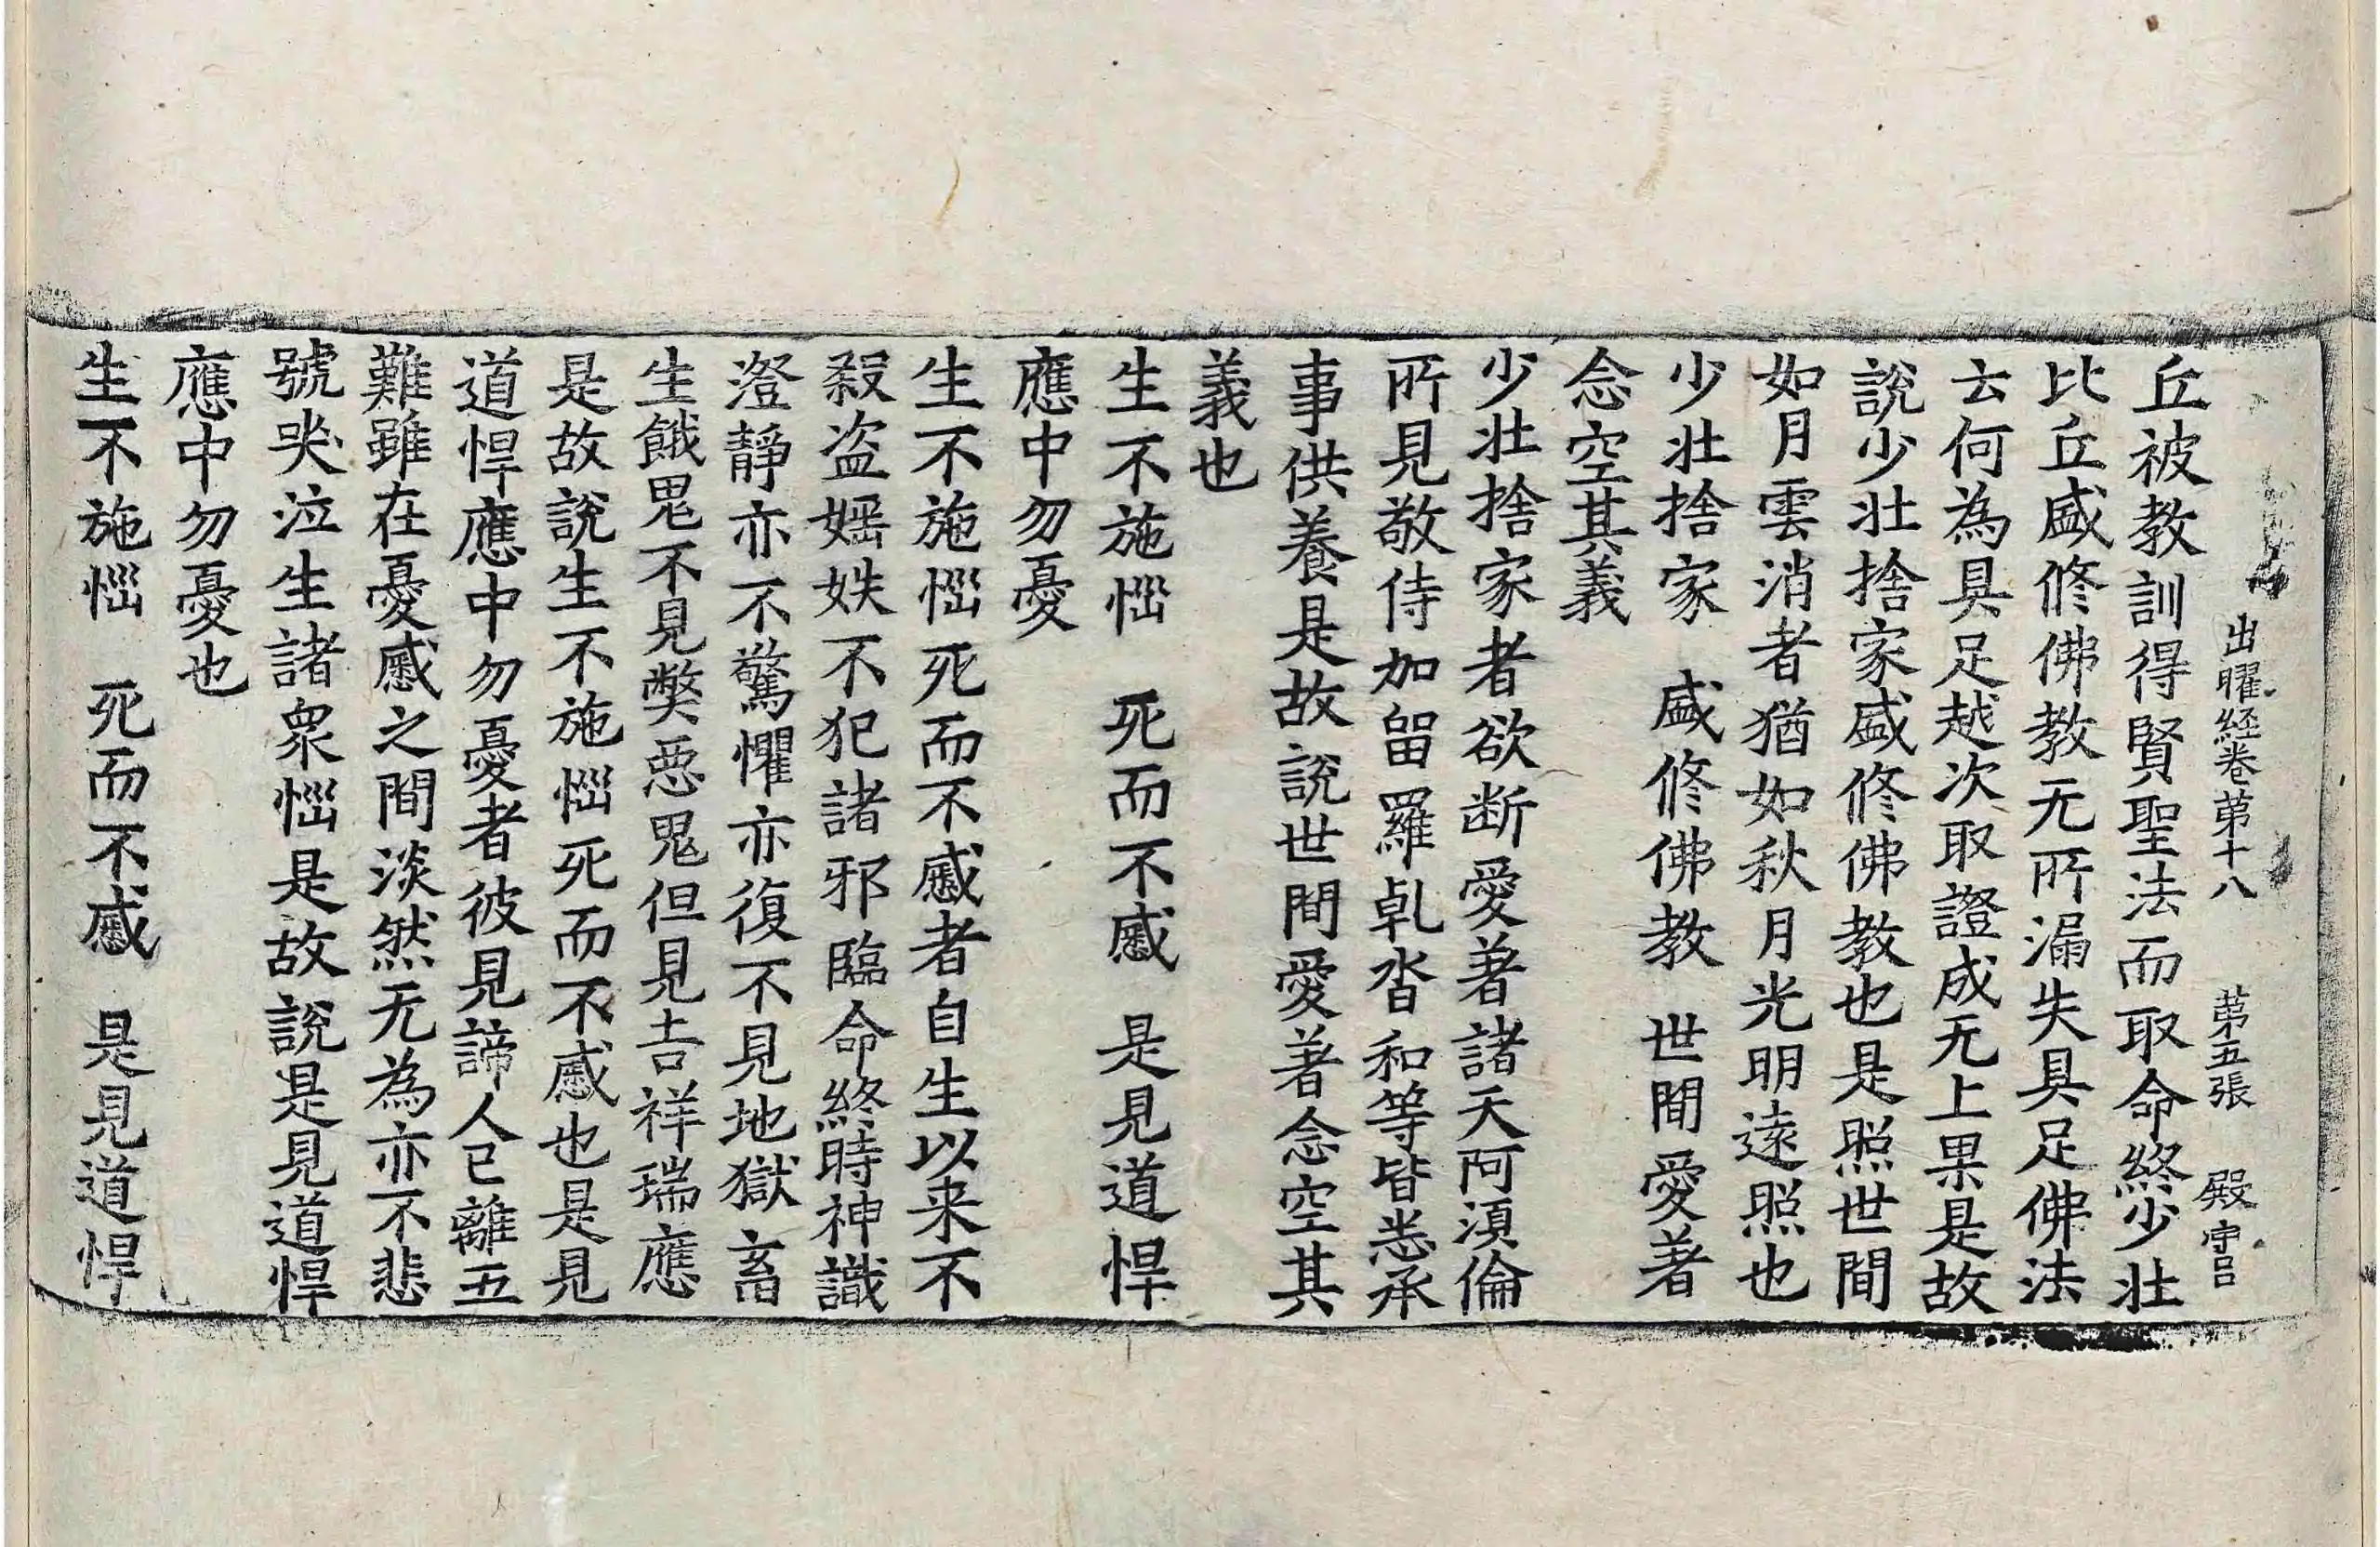 出曜経卷苐十八　苐五張　殿
丘被教訓得賢聖法而取命終少壮
比丘盛修佛教无所漏失具足佛法
云何為具足越次取證成无上果是故
說少壮捨家盛修佛教也是照世間
如月雲消者猶如秋月光明遠照也
少壮捨家　盛修佛教　世間愛著
念空其義
少壮捨家者欲断愛著諸天阿湏倫
所見敬侍加留羅乹沓和等皆悉承
事供養是故說世間愛著念空其
義也
生不施惱　死而不慼　是見道悍
應中勿憂
生不施惱死而不慼者自生以来不
殺盜婬妷不犯諸邪臨命終時神識
澄靜亦不驚懼亦復不見地獄畜
生餓鬼不見弊惡鬼但見吉祥瑞應
是故說生不施惱死而不慼也是見
道悍應中勿憂者彼見諦人已離五
難雖在憂慼之間淡然无為亦不悲
號哭泣生諸衆惱是故說是見道悍
應中勿憂也
生不施惱　死而不慼　是見道悍